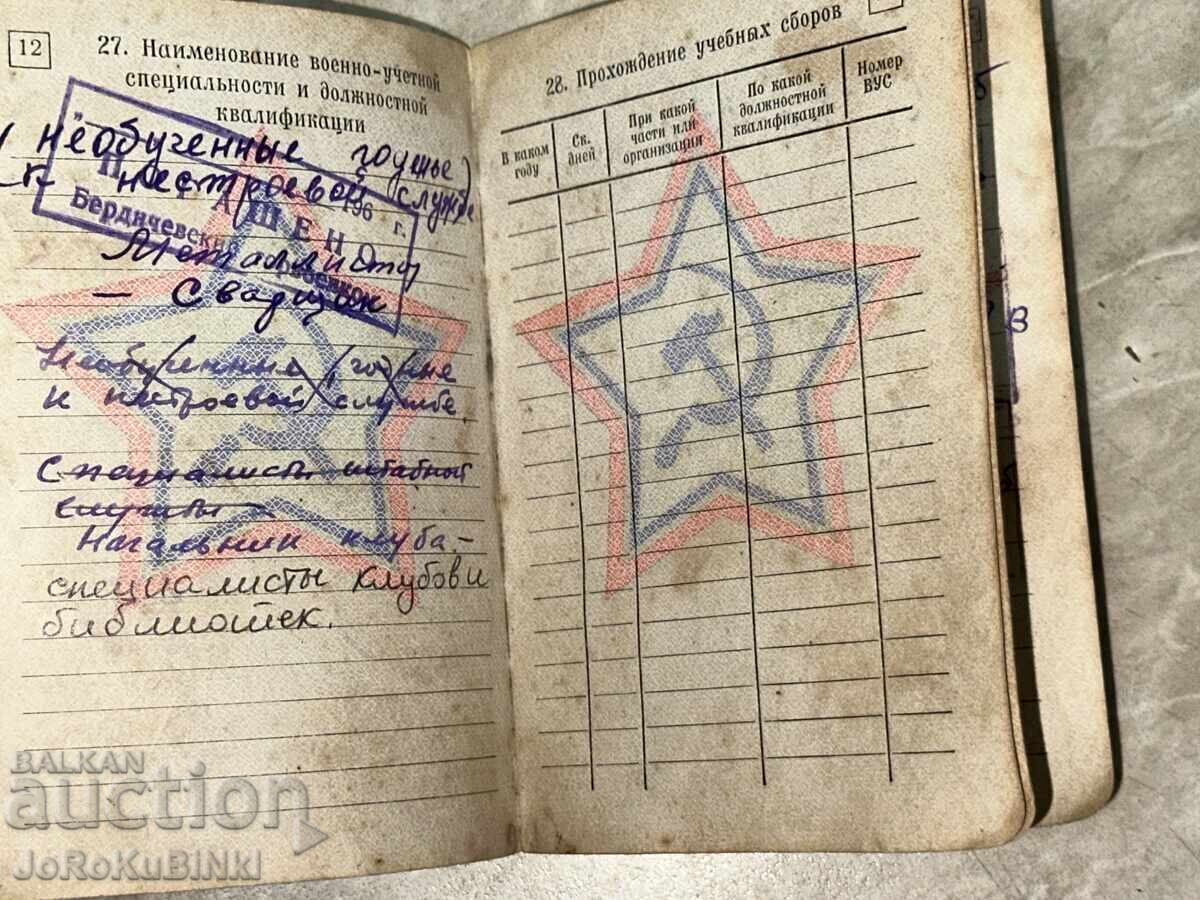 12
27. Наименование военно-учетной
специальности и должностной
квалификации
необученные годные
к нестроевой службе
ПОГАШЕНО
196 г.
Бердичевский
Металлисты
—
Необученные годные
к нестроевой службе
Специалисты штабной
службы
Начальник клуба-
специалисты клубов и
библиотек.
28. Прохождение учебных сборов
В каком году
Ск. дней
При какой части или организации
По какой должностной квалификации
Номер ВУС
В
BALKAN
auction
JoRoKuBINKI